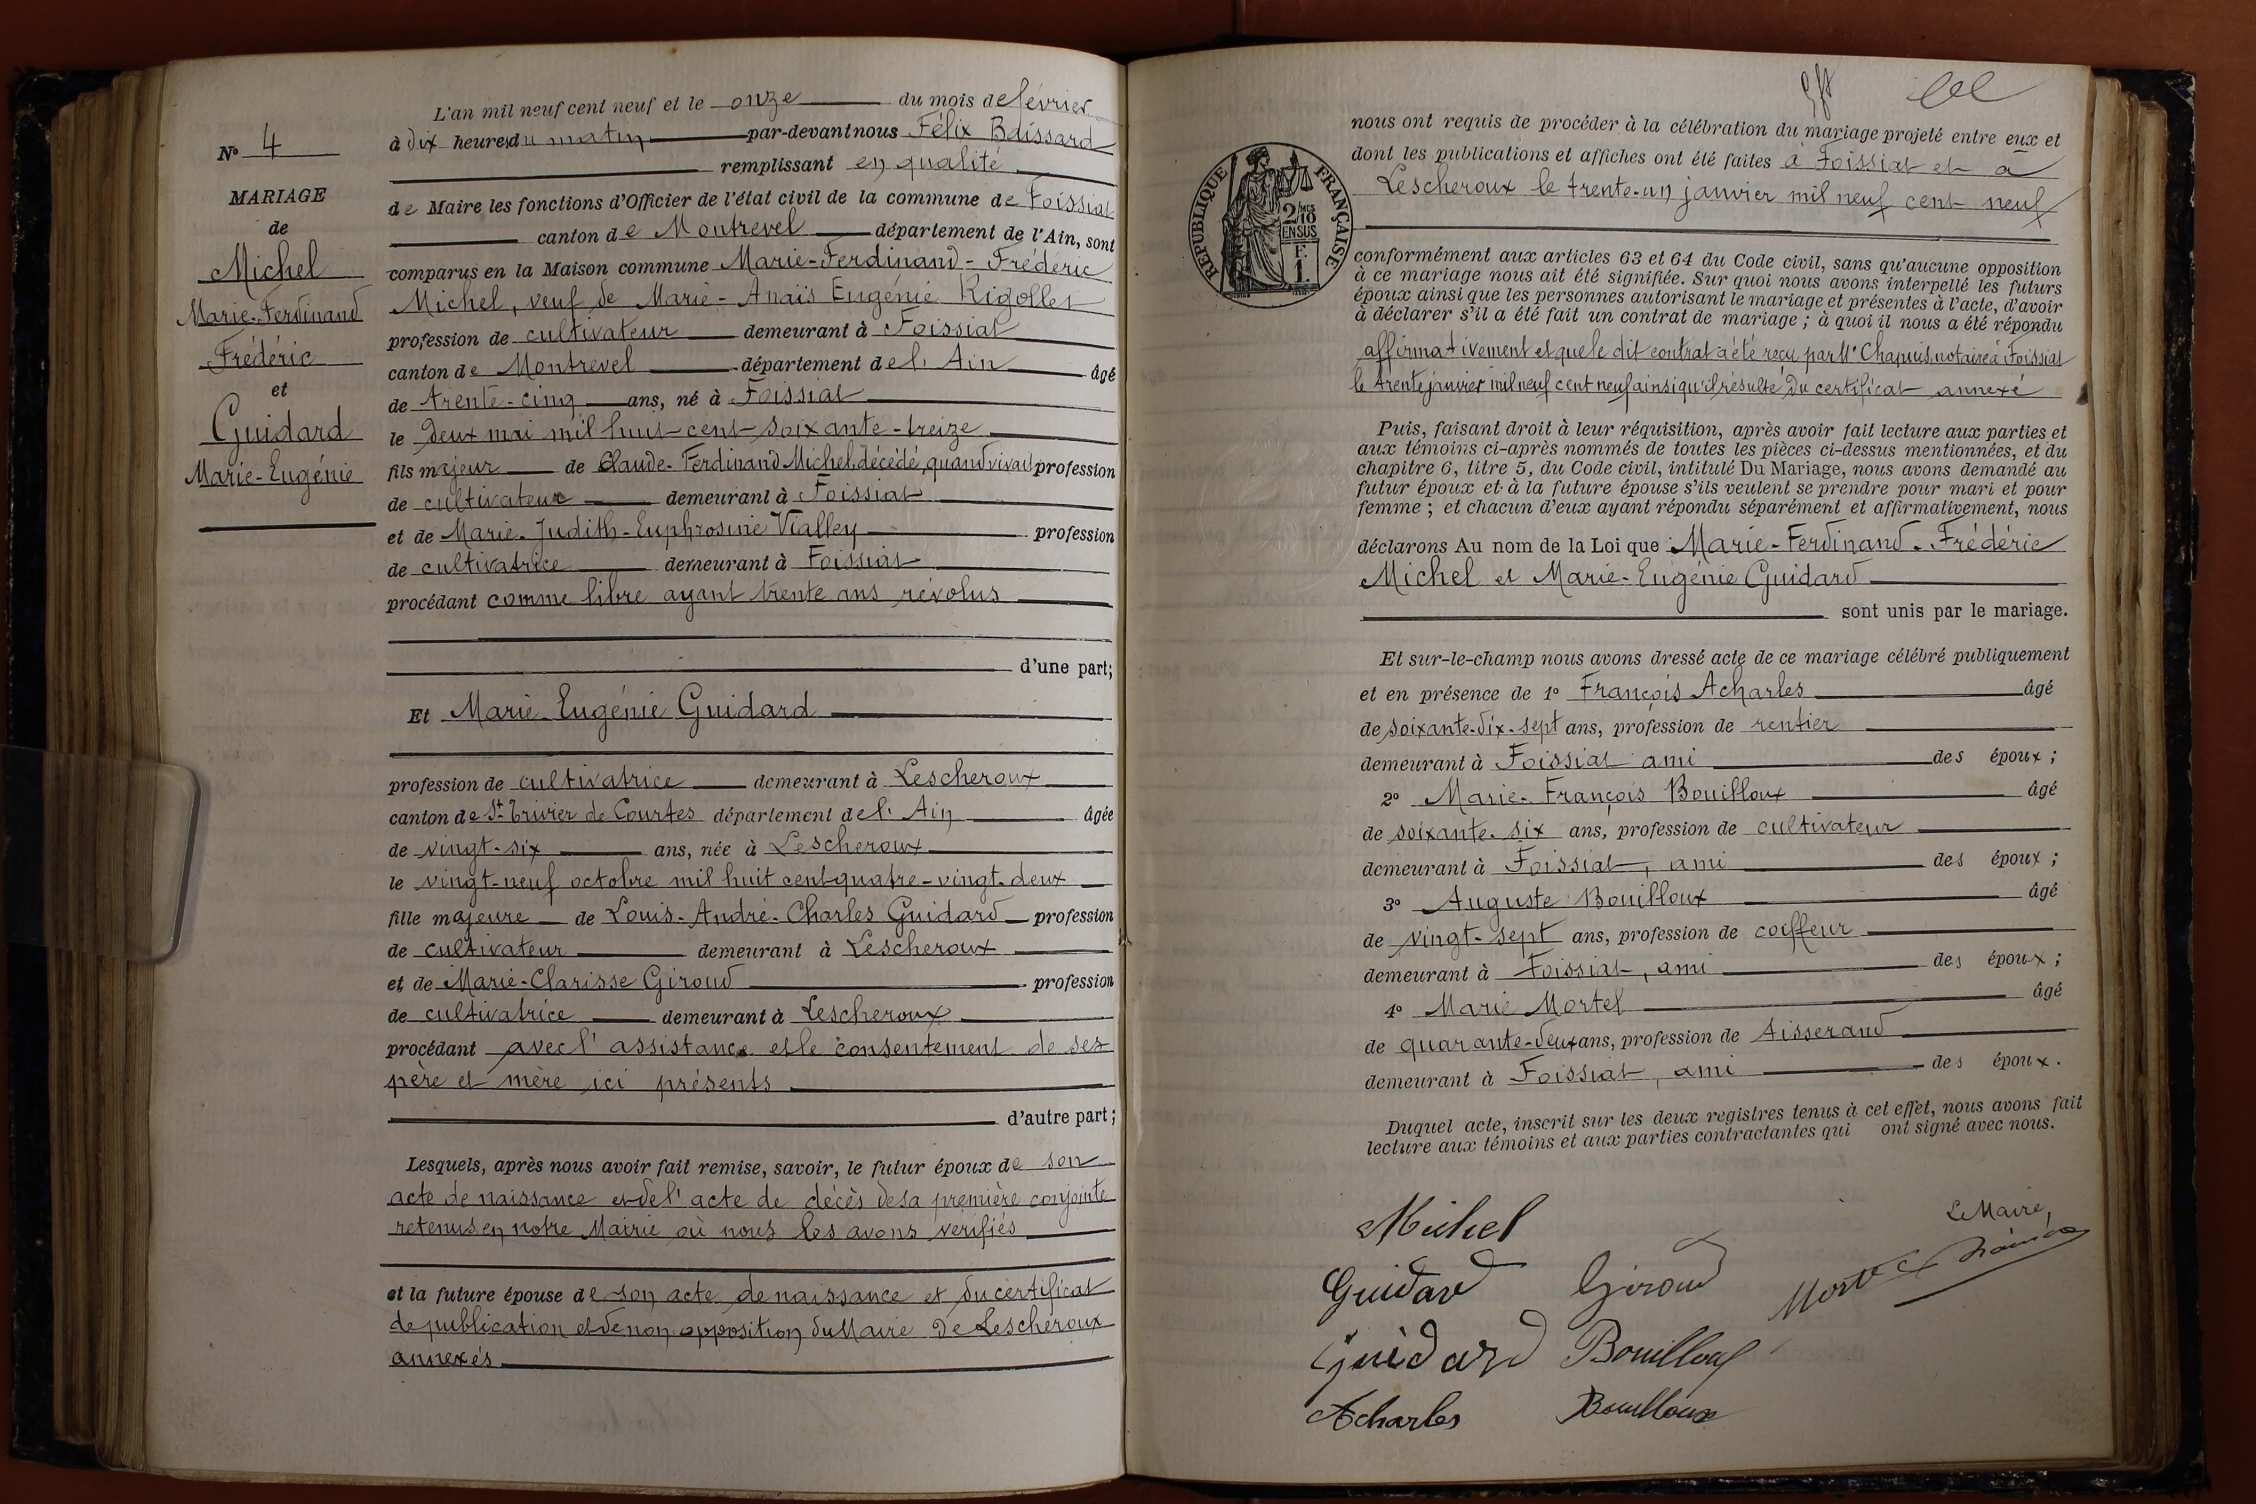 L'an mil neuf cent neuf et le onze du mois de février
N° 4
à dix heures du matin par-devant nous Félix Baissard
remplissant en qualité
MARIAGE
de Maire les fonctions d'Officier de l'état civil de la commune de Foissiat
de
canton de Montrevel département de l'Ain, sont
Michel
comparus en la Maison commune Marie-Ferdinand-Frédéric
Marie-Ferdinand
Michel, veuf de Marie-Anaïs Eugénie Rigollet
profession de cultivateur demeurant à Foissiat
Frédéric
canton de Montrevel département de l'Ain âgé
et
de trente-cinq ans, né à Foissiat
Guidard
le deux mai mil huit-cent-soixante-treize
Marie-Eugénie
fils majeur de Claude-Ferdinand Michel, décédé, quand vivait profession
de cultivateur demeurant à Foissiat
et de Marie-Judith-Euphrosine Vialley profession
de cultivatrice demeurant à Foissiat
procédant comme libre ayant trente ans révolus
d'une part;
Et Marie-Eugénie Guidard
profession de cultivatrice demeurant à Lescheroux
canton de St Trivier de Courtes département de l'Ain âgée
de vingt-six ans, née à Lescheroux
le vingt-neuf octobre mil huit cent quatre-vingt-deux
fille majeure de Louis-André-Charles Guidard profession
de cultivateur demeurant à Lescheroux
et de Marie-Clarisse Giroud profession
de cultivatrice demeurant à Lescheroux
procédant avec l'assistance et le consentement de ses
père et mère ici présents
d'autre part;
Lesquels, après nous avoir fait remise, savoir, le futur époux de son
acte de naissance et de l'acte de décès de sa première conjointe
retenus en notre Mairie où nous les avons vérifiés
et la future épouse de son acte de naissance et du certificat
de publication et de non opposition du Maire de Lescheroux
annexés
nous ont requis de procéder à la célébration du mariage projeté entre eux et
dont les publications et affiches ont été faites à Foissiat et à
Lescheroux le trente-un janvier mil neuf cent neuf
RÉPUBLIQUE FRANÇAISE
2/10
EN SUS
F.
1.
conformément aux articles 63 et 64 du Code civil, sans qu'aucune opposition
à ce mariage nous ait été signifiée. Sur quoi nous avons interpellé les futurs
époux ainsi que les personnes autorisant le mariage et présentes à l'acte, d'avoir
à déclarer s'il a été fait un contrat de mariage; à quoi il nous a été répondu
affirmativement et que le dit contrat a été reçu par Me Chapuis, notaire à Foissiat
le trente janvier mil neuf cent neuf ainsi qu'il résulte du certificat annexé
Puis, faisant droit à leur réquisition, après avoir fait lecture aux parties et
aux témoins ci-après nommés de toutes les pièces ci-dessus mentionnées, et du
chapitre 6, titre 5, du Code civil, intitulé Du Mariage, nous avons demandé au
futur époux et à la future épouse s'ils veulent se prendre pour mari et pour
femme; et chacun d'eux ayant répondu séparément et affirmativement, nous
déclarons Au nom de la Loi que Marie-Ferdinand-Frédéric
Michel et Marie-Eugénie Guidard
sont unis par le mariage.
Et sur-le-champ nous avons dressé acte de ce mariage célébré publiquement
et en présence de 1° François Acharles âgé
de soixante-dix-sept ans, profession de rentier
demeurant à Foissiat ami des époux;
2° Marie-François Bouilloux âgé
de soixante-six ans, profession de cultivateur
demeurant à Foissiat, ami des époux;
3° Auguste Bouilloux âgé
de vingt-sept ans, profession de coiffeur
demeurant à Foissiat, ami des époux;
4° Marie Mortel âgé
de quarante-deux ans, profession de tisserand
demeurant à Foissiat, ami des époux.
Duquel acte, inscrit sur les deux registres tenus à cet effet, nous avons fait
lecture aux témoins et aux parties contractantes qui ont signé avec nous.
Michel
Le Maire,
Guidard Giroud
Guidard Bouilloux
Acharles Bouilloux